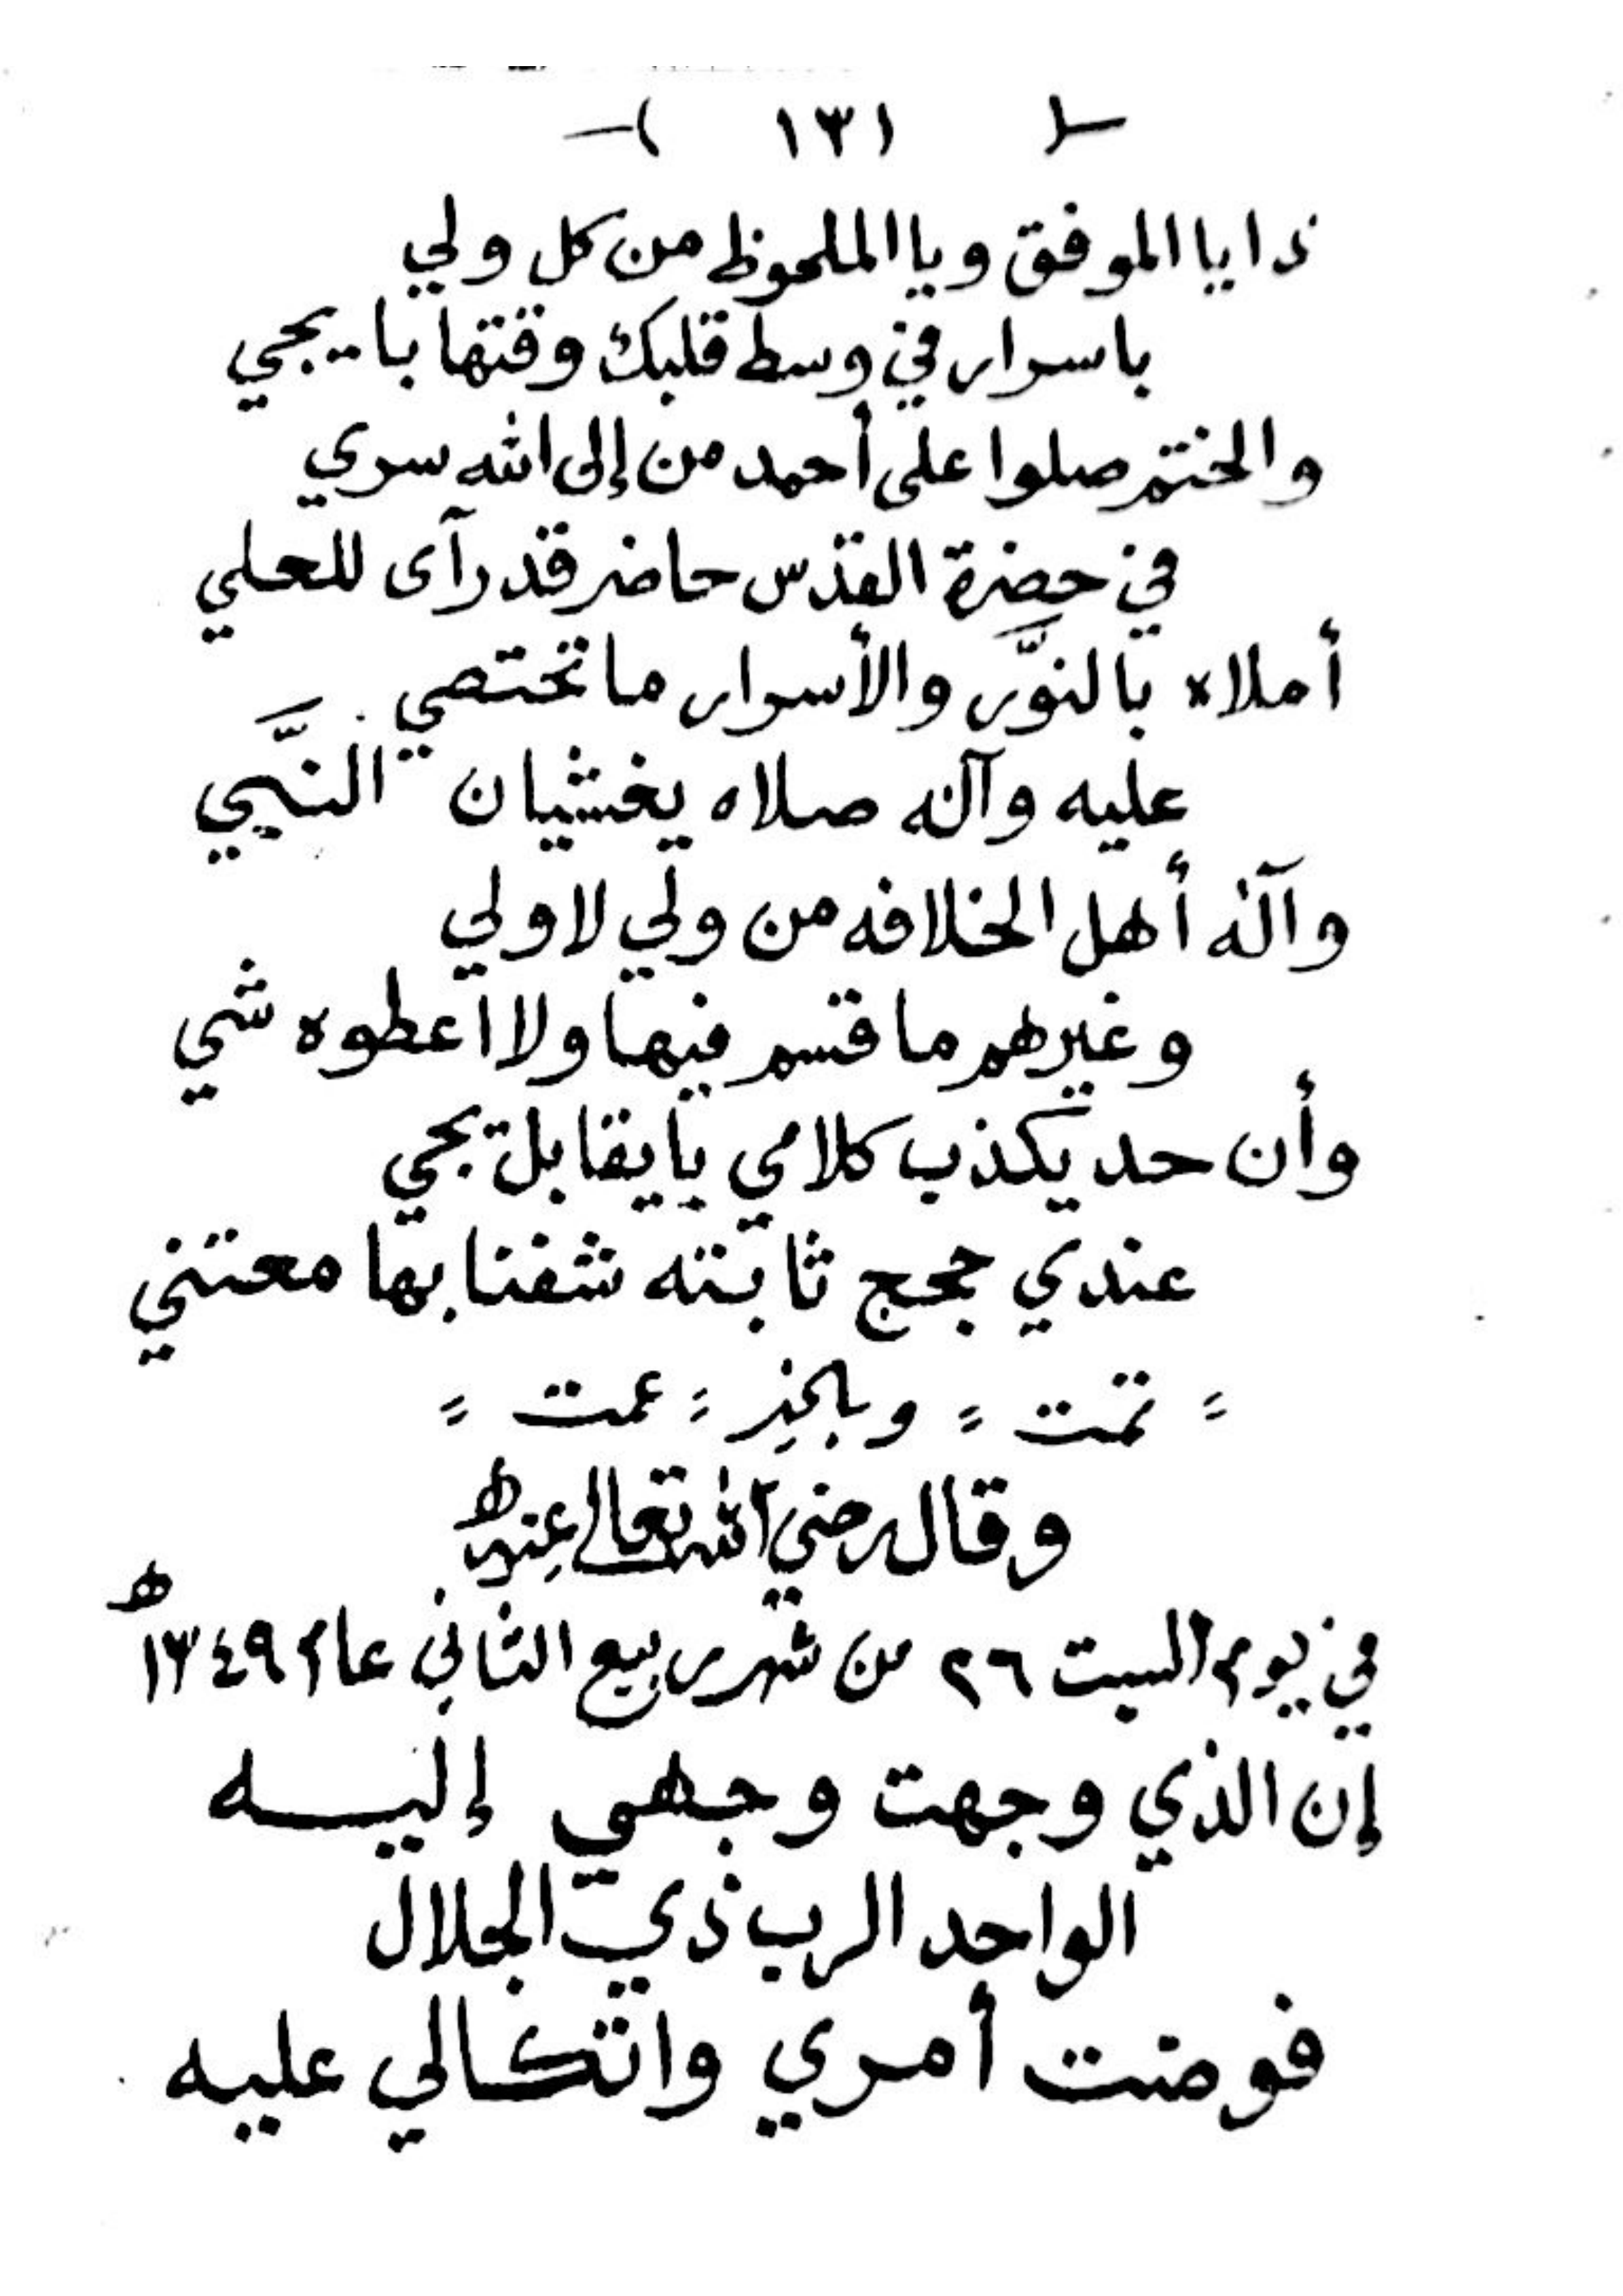 -( ١٣١ )-
ذا يا الموفق ويا الملحوظ من كل ولي
باسرار في وسط قلبك وقتها با يجي
والختم صلوا على أحمد من إلى الله سري
في حضرة القدس حاضر قد رآى للعلي
أملاه بالنوَّر والأسرار ما تختصي
عليه وآله صلاه يغشيان النَّبي
وآله أهل الخلافه من ولي لا ولي
وغيرهم ما قسم فيها ولا اعطوه شي
وأن حد يكذب كلامي يا يقابل يجي
عندي حجج ثابته شفنا بها معتني
= تمت = وبالخير = عمت =
وقال رضي الله تعالى عنه
في يوم السبت ٢٦ من شهر ربيع الثاني عام ١٣٤٩ ه
إن الذي وجهت وجهي إليه
الواحد الرب ذي الجلال
فوضت أمري واتكالي عليه